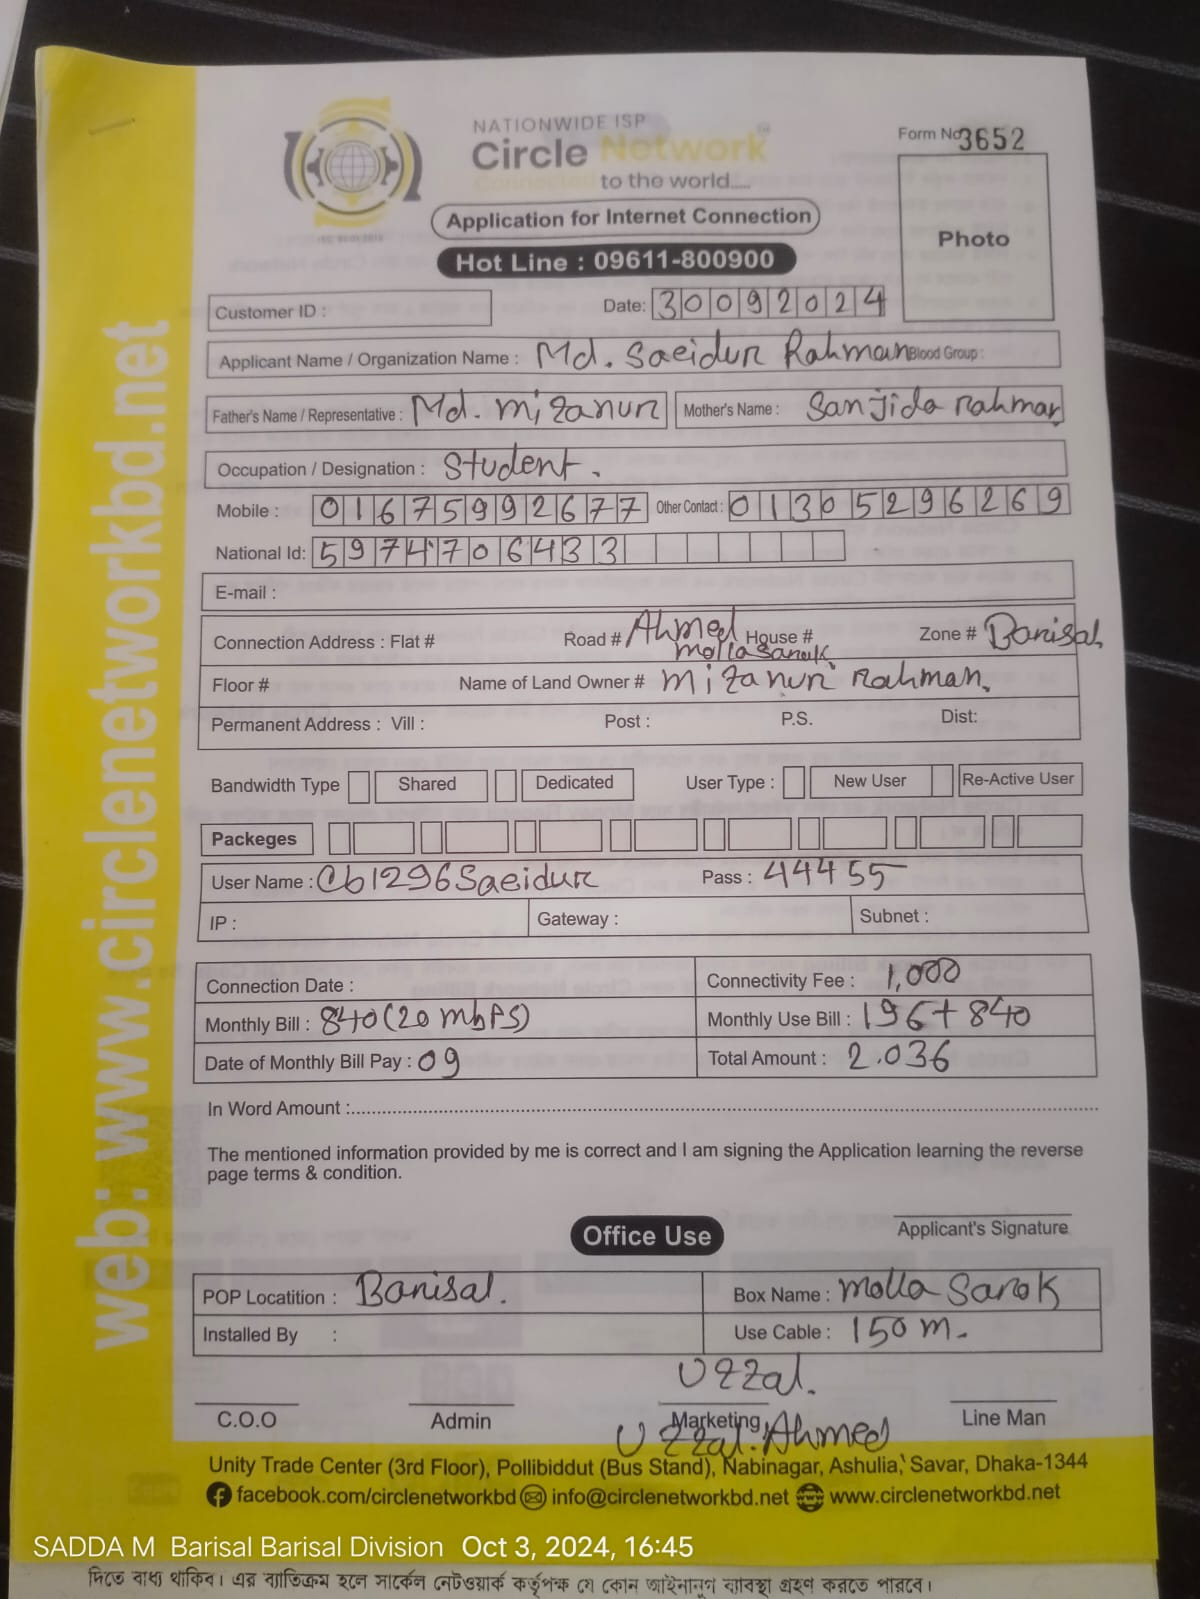 NATIONWIDE ISP
Circle Network
to the world....
Form No 3652
Application for Internet Connection
Photo
Hot Line : 09611-800900
Customer ID :
Date: 30092024
Applicant Name / Organization Name : Md. Saeidur Rahman Blood Group :
Father's Name / Representative : Md. mizanur Mother's Name : Sanjida rahman
Occupation / Designation : Student.
Mobile : 01675992677 Other Contact : 01305296269
National Id: 5974706433
E-mail :
Connection Address : Flat # Road # Ahmed molla Sarak House # Zone # Barisal
Floor # Name of Land Owner # mizanur rahman.
Permanent Address : Vill : Post : P.S. Dist:
Bandwidth Type Shared Dedicated User Type : New User Re-Active User
Packeges
User Name : Cb1296Saeidur Pass : 44455
IP : Gateway : Subnet :
Connection Date : Connectivity Fee : 1,000
Monthly Bill : 840(20 mbps) Monthly Use Bill : 196+840
Date of Monthly Bill Pay : 09 Total Amount : 2.036
In Word Amount :
The mentioned information provided by me is correct and I am signing the Application learning the reverse
page terms & condition.
Office Use
Applicant's Signature
POP Locatition : Barisal. Box Name : molla Sarok
Installed By : Use Cable : 150 m.
Uzzal.
C.O.O Admin Marketing Line Man
Uzzal. Ahmed
Unity Trade Center (3rd Floor), Pollibiddut (Bus Stand), Nabinagar, Ashulia, Savar, Dhaka-1344
facebook.com/circlenetworkbd info@circlenetworkbd.net www.circlenetworkbd.net
web: www.circlenetworkbd.net
SADDA M Barisal Barisal Division Oct 3, 2024, 16:45
দিতে বাধ্য থাকিব। এর ব্যতিক্রম হলে সার্কেল নেটওয়ার্ক কর্তৃপক্ষ যে কোন আইনানুগ ব্যবস্থা গ্রহণ করতে পারবে।